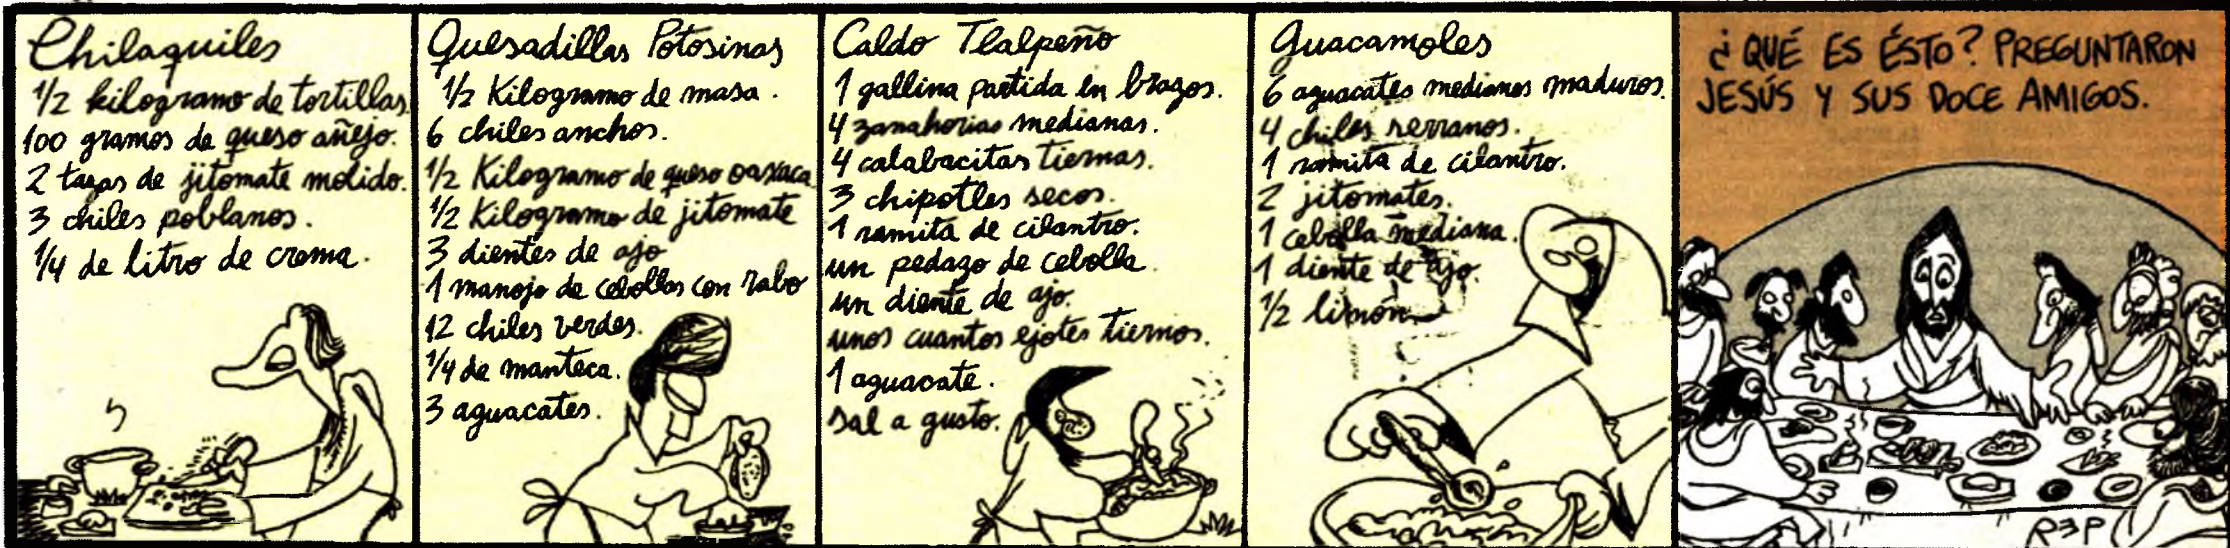 Chilaquiles
1/2 kilogramo de tortillas.
100 gramos de queso añejo.
2 tazas de jitomate molido.
3 chiles poblanos.
1/4 de litro de crema.
Quesadillas Potosinas
1/2 Kilogramo de masa.
6 chiles anchos.
1/2 Kilogramo de queso oaxaca
1/2 Kilogramo de jitomate
3 dientes de ajo
1 manojo de cebollas con rabo
12 chiles verdes.
1/4 de manteca.
3 aguacates.
Caldo Tlalpeño
1 gallina partida en brazos.
4 zanahorias medianas.
4 calabacitas tiernas.
3 chipotles secos.
1 ramita de cilantro.
un pedazo de cebolla.
un diente de ajo.
unos cuantos ejotes tiernos.
1 aguacate.
sal a gusto.
Guacamoles
6 aguacates medianos maduros.
4 chiles serranos.
1 ramita de cilantro.
2 jitomates.
1 cebolla mediana.
1 diente de ajo.
1/2 limón
¿QUÉ ES ÉSTO? PREGUNTARON
JESÚS Y SUS DOCE AMIGOS.
REP